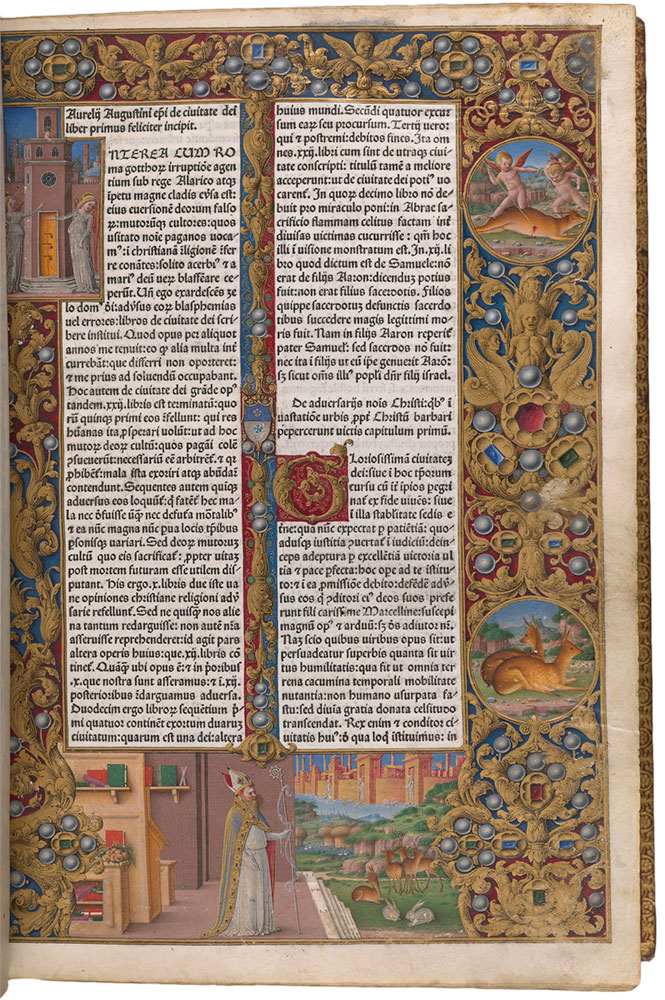 Aurelij Augustini epī de ciuitate dei
liber primus feliciter incipit.
NTEREA CUM RO
ma gotthorꝝ irruptiōe agen
tium sub rege Alarico atqꝫ
īpetu magne cladis eu̓sa est:
eius euersionē deorum falso
rꝝ:mutorūqꝫ cultores:quos
usitato noīe paganos uoca
mꝰ:ī christianā r̄ligionē r̄fer
re conātes:solito acerbiꝰ ⁊ a
mariꝰ deū ueꝝ blasfēare ce
perūt. Un̄ ego exardescēs ze
lo domꝰ dī:adu̓sus eorꝝ blasphemias
uel errores:libros de ciuitate dei scr̄
bere institui. Quod opus ꝑ aliquot
annos me tenuit:eo ꝙ alia multa int̓
currebāt:que differri non oporteret:
⁊ me prius ad soluendū occupabant.
Hoc autem de ciuitate dei grāde opꝰ
tandem.xxij.libris est terminatū:quo
rū quinqꝫ primi eos r̄fellunt: qui res
hūanas ita ꝓsperari uolūt:ut ad hoc
mutorꝝ deorꝝ cultū:quos pagāi colē̓
ꝯsueuerūt:necessariū eē arbitrēt̓:⁊ q̓
ꝓhibēt̓:mala ista exoriri atqꝫ abūdař
contendunt. Sequentes autem quiqꝫ
adversus eos loquūt̓:q̓ fatēt̓ hec ma
la nec dfuisse ūqꝫ nec defutura mōtalibꝰ
⁊ ea nūc magna nūc ꝑua locis tp̄ibus
ꝑsonisqꝫ uariari. Sed deorꝝ mutorꝝ
cultū quo eis sacrificat̓: ꝓpter uitaꝫ
post mortem futuram esse utilem dis
putant. His ergo.x.libris due iste ua
ne opiniones christiane religioni adu̓
sarie refellunt̓. Sed ne quisqꝫ nos alie
na tantum redarguisse: non autē nr̄a
asseruisse reprehenderet: id agit pars
altera operis huius:que.xij.libris cō
tinet̓. Quāqꝫ ubi opus ē:⁊ in p̄oribꝰ
.x.que nostra sunt asseramus:⁊ ī.xij.
posterioribus r̄darguamus aduersa.
Duodecim ergo librorꝝ seqūetiū p̄
mi quatuor continent exortum duarꝫ
ciuitatum:quarum est una dei:altera
huius mundi. Secūdi quatuor excur
sum earꝫ seu procursum. Tertij uero:
qui ⁊ postremi:debitos fines. Ita om
nes.xxij.libri cum sint de utraqꝫ ciui
tate conscripti: titulū tamē a meliore
acceperunt:ut de ciuitate dei potiꝰ uo
carent̓. In quorꝝ decimo libro nō de
buit pro miraculo poni:in Abrae sa
crificio flammam celitus factam int̓
diuisas uictimas cucurrisse: qm̄ hoc
illi ī uisione monstratum est. In.xij.li
bro quod dictum est de Samuele:nō
erat de filijs Aaron:dicenduꝫ potius
fuit:non erat filius sacerdotis. Filios
quippe sacerdotuꝫ defunctis sacerdo
tibus succedere magis legittimi mo
ris fuit. Nam in filijs Aaron reperit̓
pater Samuel: sed sacerdos nō fuit:
nec ita ī filijs ut eū ip̄e genuerit Aarō:
sꝫ sicut om̄s illiꝰ popl̓i dn̄r filij israel.
De aduersarijs noīs Christi:qͥbꝰ ī
uastatiōe urbis ꝓpt̓ Christū barbari
pepercerunt uictis capitulum primū.
GLoriosissimā ciuitateꝫ
dei:siue ī hoc tp̄orum
cursu cū īt̓ īpios pegri
nat̓ ex fide uiuēs: siue
ī illa stabilitate sedis et
erne:qua nūc expectat ꝑ patiētiā:quo
adusqꝫ iustitia ꝯuertat̓ ī iudiciū:dein
ceps adeptura ꝑ excellētiā uictoria ul
tia ⁊ pace ꝑfecta:hoc opē ad te īstitu
to:⁊ ea ꝓmissiōe debito:defēdē aduer
sus eos q̓ ꝯditori eiꝰ deos suos prefe
runt fili carissime Marcelline:suscepi
magnū opꝰ ⁊ arduū:sꝫ dꝰ adiutor nr̄.
Naꝫ scio quibus uiribus opus sit:ut
persuadeatur superbis quanta sit uir
tus humilitatis: qua fit ut omnia ter
rena cacumina temporali mobilitate
nutantia:non humano usurpata fa
stu:sed diuīa gratia donata celsitudo
transcendat. Rex enim ⁊ conditor ci
uitatis huiꝰ:d̓ qua loqͥ īstituimus: in